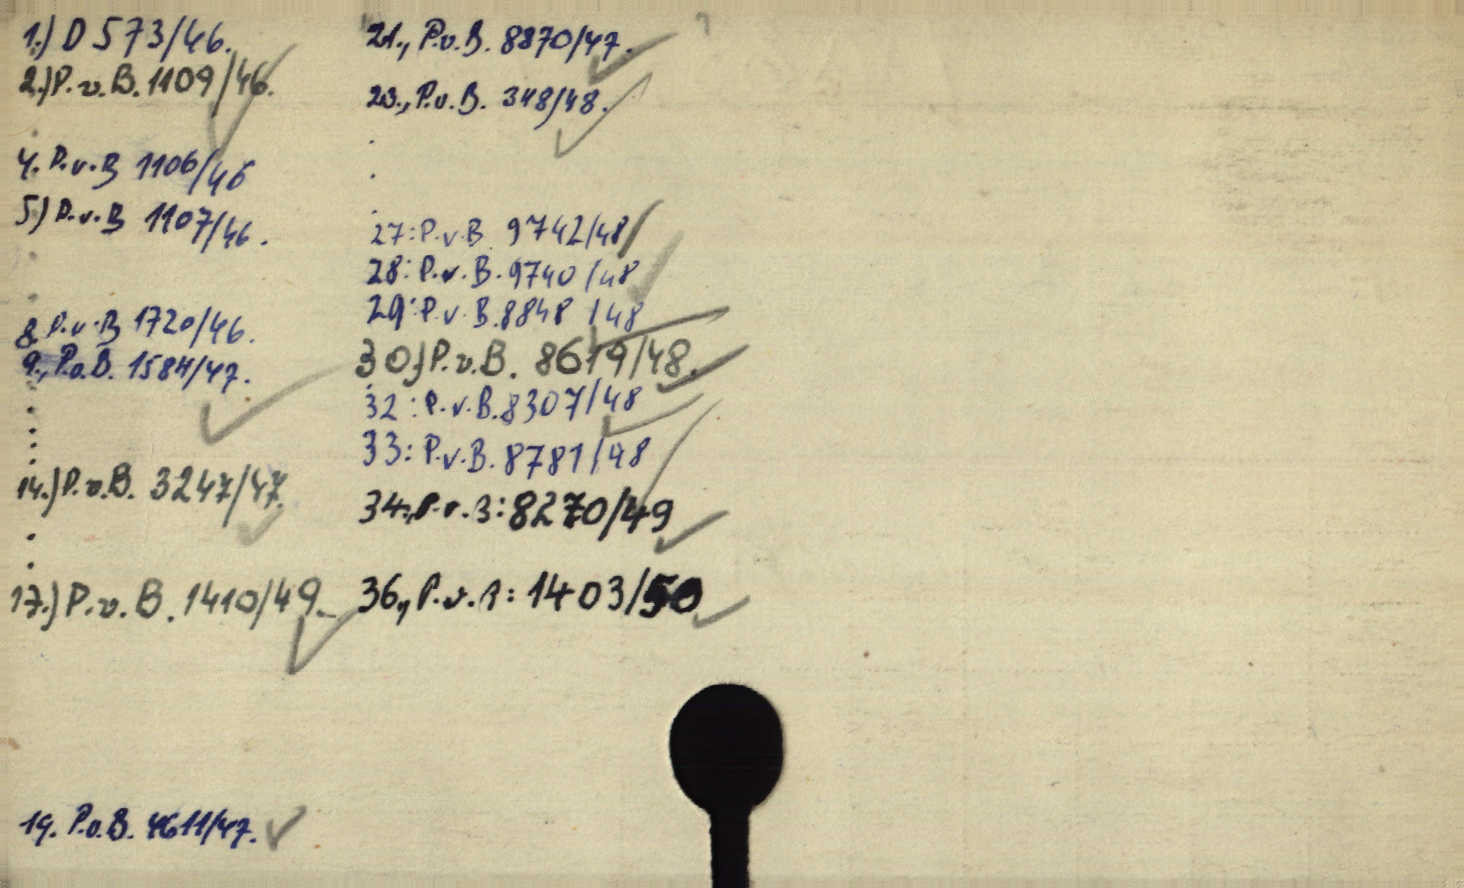 1.) D 573/46.
2.) P.v.B. 1109/46.
4. P.v.B 1106/46
5) P.v.B 1107/46.
8. P.v.B 1720/46.
9., P.v.B. 1584/47.
14.) P.v.B. 3247/47.
17.) P.v.B. 1410/49.
19. P.v.B. 4611/47.
21., P.v.B. 8870/47.
23., P.v.B. 348/48.
27: P.v.B 9742/48
28: P.v.B. 9740/48
29: P.v.B. 8848/48
30.) P.v.B. 8619/48.
32: P.v.B. 8307/48
33: P.v.B. 8781/48
34., P.v.B: 8270/49
36., P.v.B: 1403/50